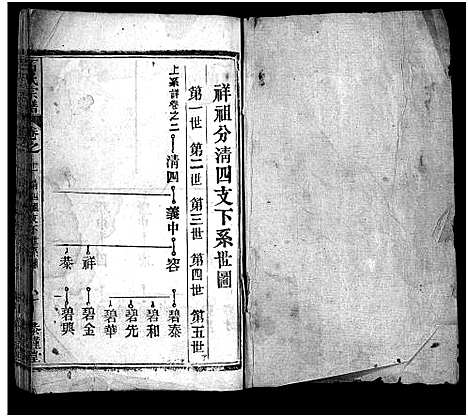 祥祖分清四支下系世圖
第一世 第二世 第三世 第四世 第五世
上系詳卷之二 清四 義中 容 碧泰
碧和
碧先
碧華
祥 碧金
恭 碧興
氏宗譜 卷之